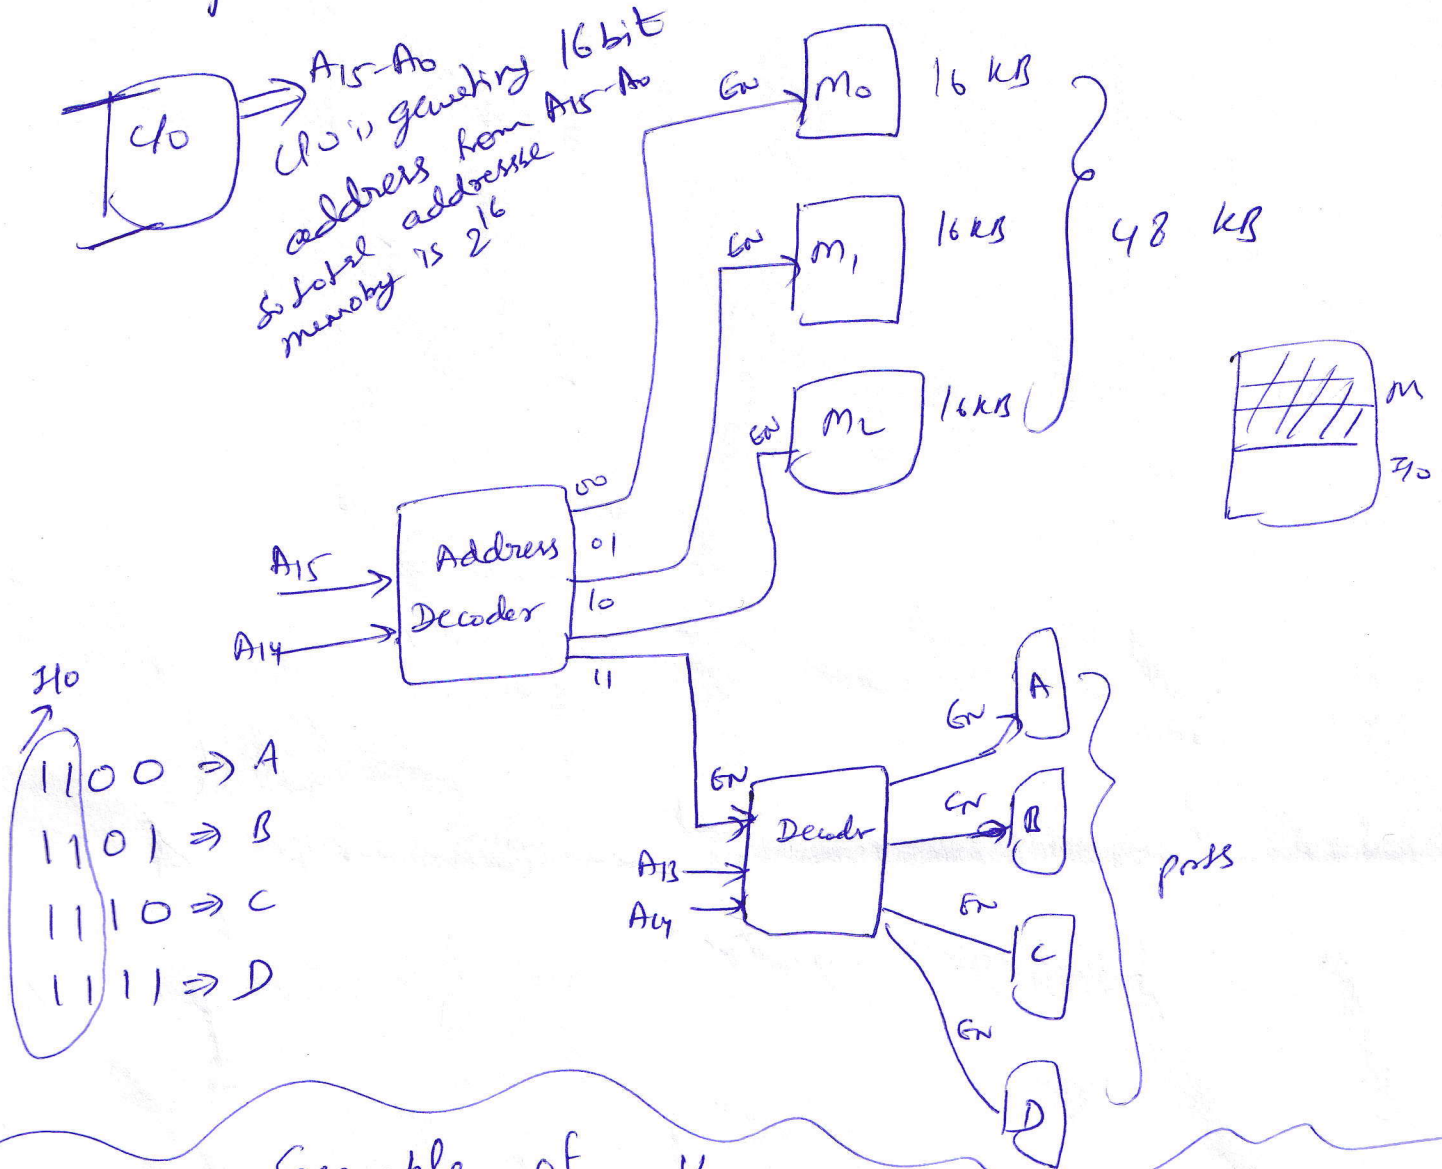 A15-A0
is generating 16 bit
address from A15-A0
so total addressse
memory is 2^16
EN
M0
16 KB
EN
M1
16KB
48 KB
EN
M2
16KB
M
I/o
A15
A14
Address
Decoder
00
01
10
11
I/o
1100 ⇒ A
1101 ⇒ B
1110 ⇒ C
1111 ⇒ D
EN
A13
Decodr
EN
A
EN
B
EN
C
EN
D
of